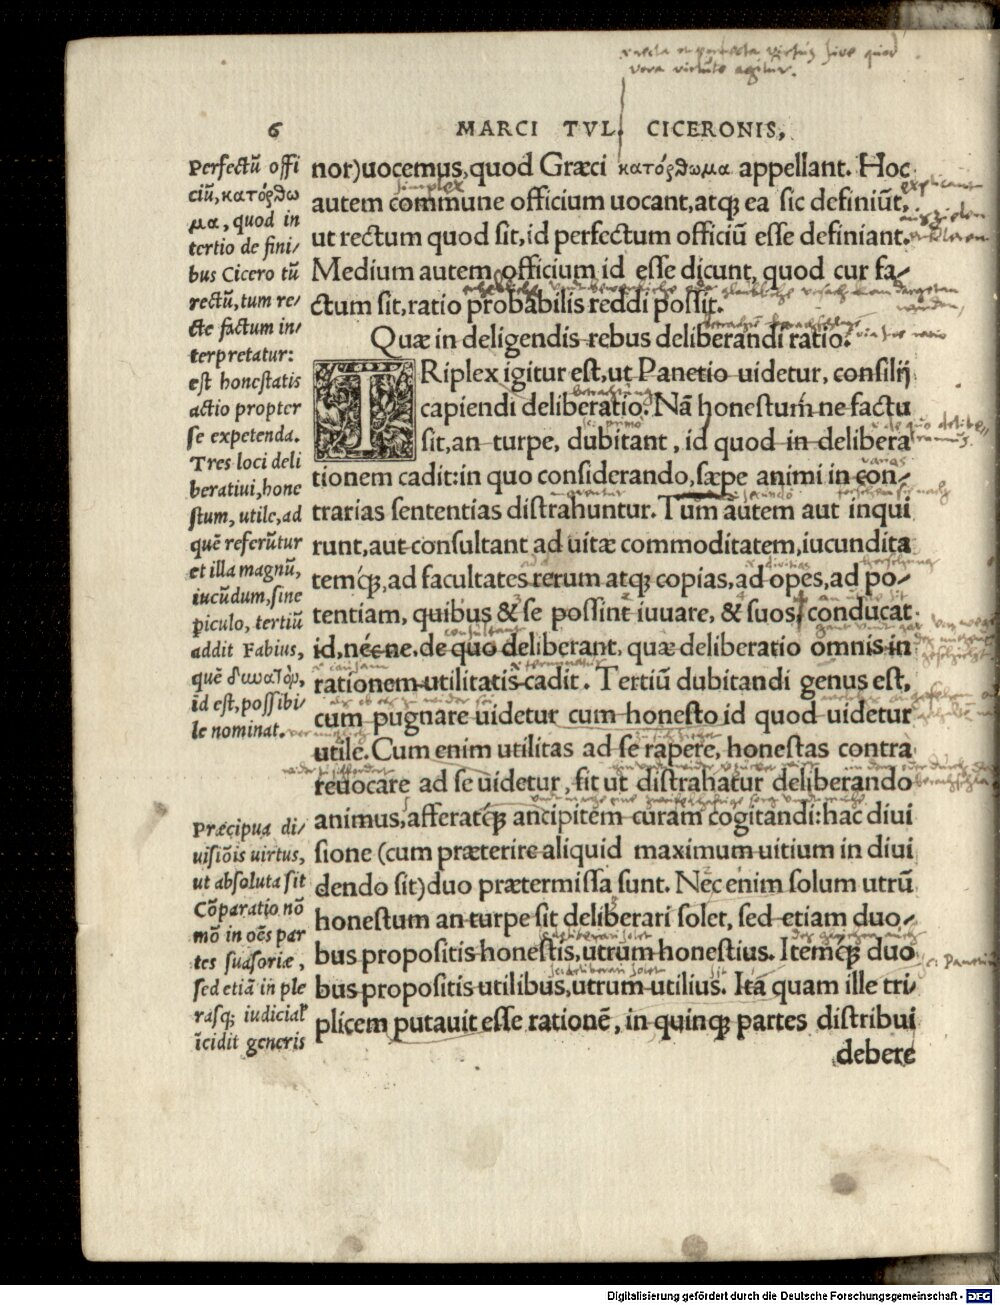 recta et perfecta virtus sive quod
vera virtute agitur.
6
MARCI TVL. CICERONIS,
Perfectũ offi
ciũ, κατόρθω
μα, quod in
tertio de fini/
bus Cicero tũ
rectũ, tum re/
cte factum in/
terpretatur:
est honestatis
actio propter
se expetenda.
Tres loci deli
beratiui, hone
stum, utile, ad
quẽ referũtur
et illa magnũ,
iucũdum, sine
ꝑiculo, tertiũ
addit Fabius,
quẽ
id est, possibi/
le nominat.
Præcipua di/
uisiõis uirtus,
ut absoluta sit
Cõparatio nõ
mõ in oẽs par
tes suasoriæ,
sed etiã in ple
rasq; iudicial
ĩcidit generis
nor)uocemus, quod Græci κατόρθωμα appellant. Hoc
autem commune officium uocant, atq; ea sic definiũt,
ut rectum quod sit, id perfectum officiũ esse definiant.
Medium autem officium id esse dicunt, quod cur fa/
ctum sit, ratio probabilis reddi possit.
Quæ in deligendis rebus deliberandi ratio.
TRiplex igitur est, ut Panetio uidetur, consilij
capiendi deliberatio. Nã honestum ne factu
sit, an turpe, dubitant, id quod in delibera
tionem cadit: in quo considerando, sæpe animi in con/
trarias sententias distrahuntur. Tum autem aut inqui
runt, aut consultant ad uitæ commoditatem, iucundita
temq́;, ad facultates rerum atq; copias, ad opes, ad po/
tentiam, quibus & se possint iuuare, & suos, conducat
id, nécne, de quo deliberant, quæ deliberatio omnis in
rationem utilitatis cadit. Tertiũ dubitandi genus est,
cum pugnare uidetur cum honesto id quod uidetur
utile. Cum enim utilitas ad se rapere, honestas contra
reuocare ad se uidetur, fit ut distrahatur deliberando
animus, afferatq́; ancipitem curam cogitandi: hac diui
sione (cum præterire aliquid maximum uitium in diui
dendo sit) duo prætermissa sunt. Nec enim solum utrũ
honestum an turpe sit deliberari solet, sed etiam duo/
bus propositis honestis, utrum honestius. Itemq́; duo
bus propositis utilibus, utrum utilius. Ita quam ille tri/
plicem putauit esse rationẽ, in quinq; partes distribui
debere
simplex
Digitalisierung gefördert durch die Deutsche Forschungsgemeinschaft - DFG